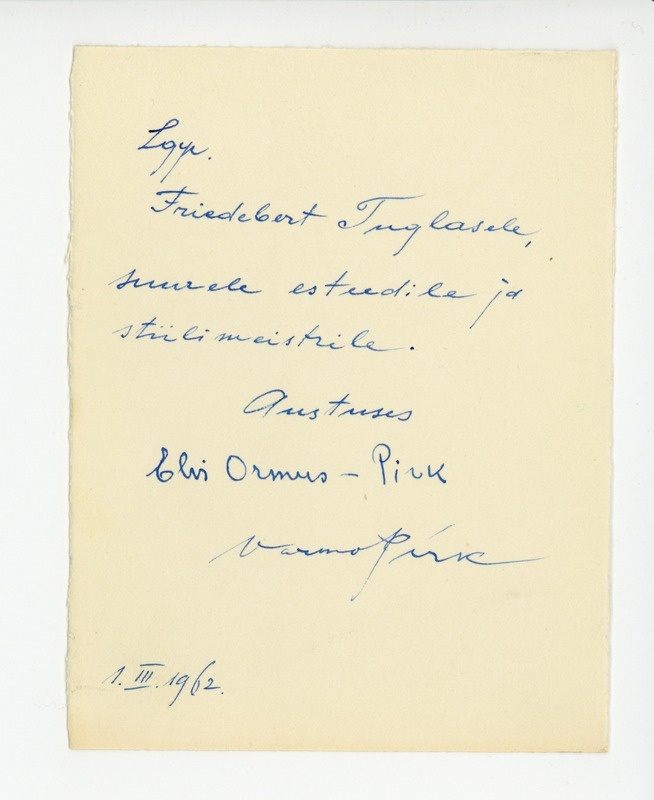 Lgp.
Friedebert Tuglasele,
suurele esteedile ja
stiilimeistrile.
Austuses
Elvi Ormus - Pirk
Varmo Pirk
1. III. 1962.